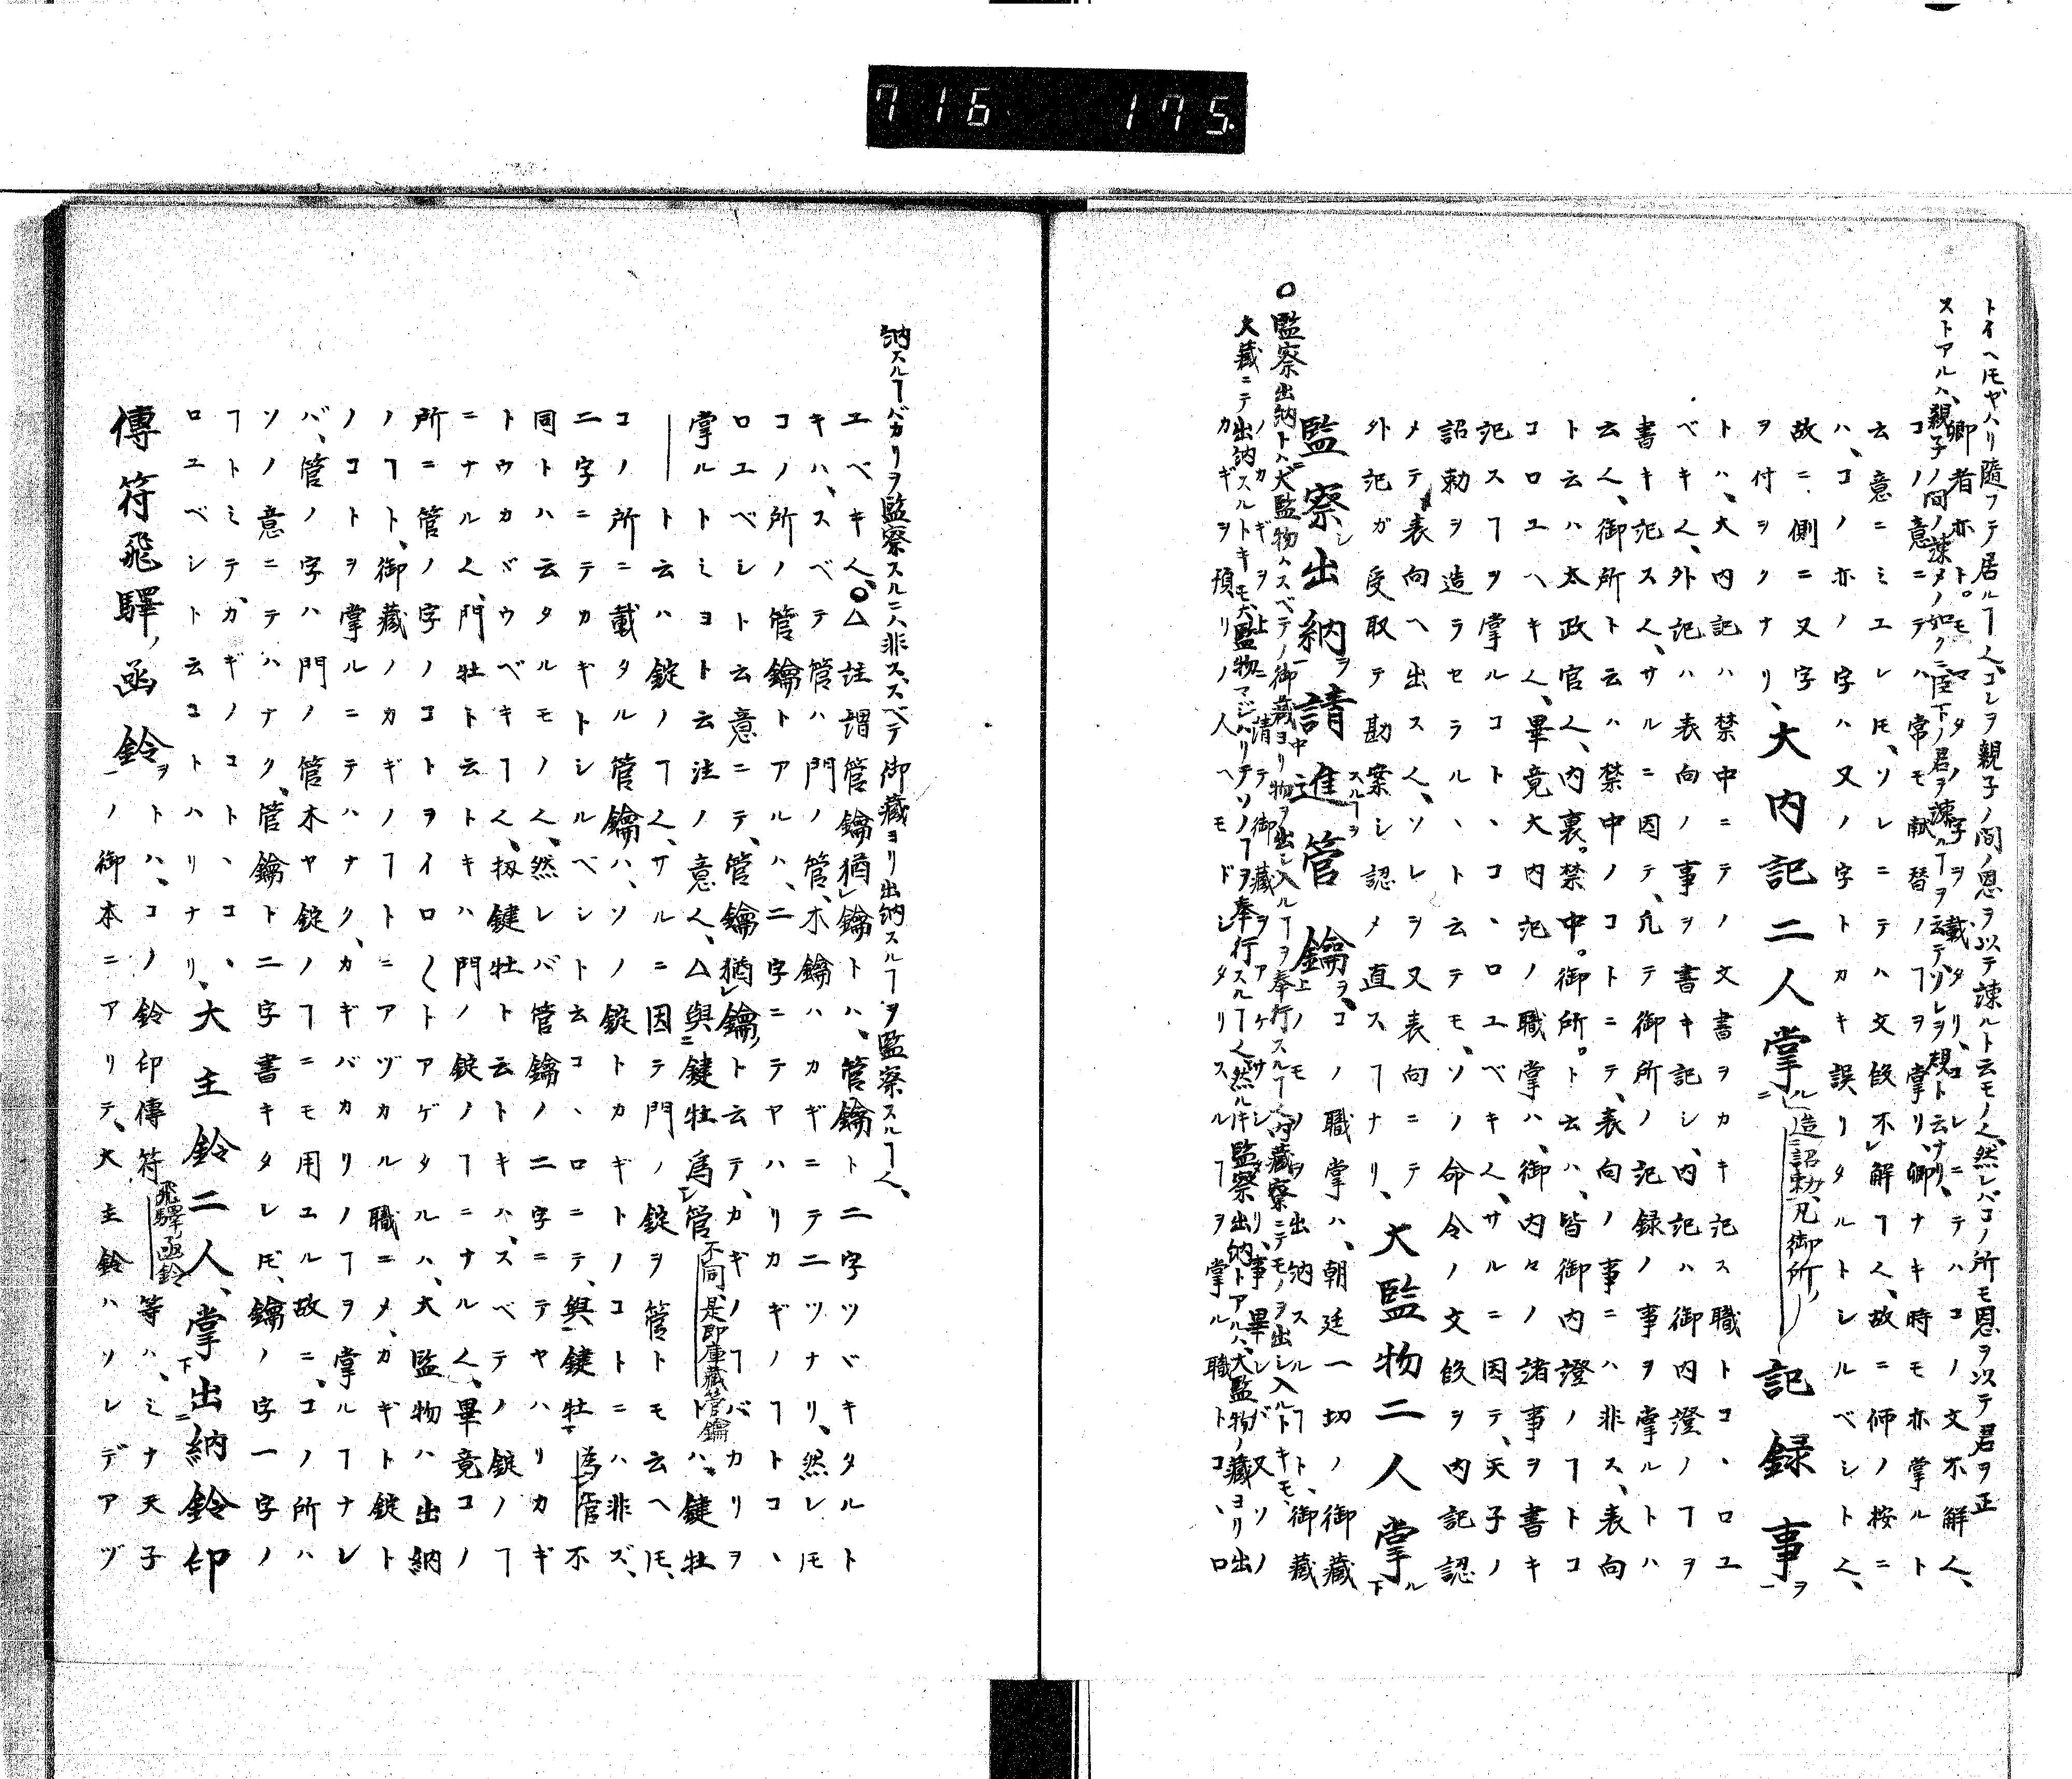 716 175
トイヘ𪜈ヤハリ隨フテ居ルヿ也、コレヲ親子ノ間ノ恩ヲ以テ諫ルト云モノ也、然レバコノ所モ恩ヲ以テ君ヲ正
ストアルハ、親子ノ間ノ諫メノ如クニ臣下ノ君ヲ諫ルヿヲ云テ、ソレヲ規ト云ナリ、
卿者亦ト。モマタノ字ヲ載タリ、コレニテハコノ文不解也、
コノ意ニテハ常モ献替ノヿヲ掌リ、卿ナキ時モ亦掌ルト
云意ニミエレ𪜈、ソレニテハ文段不レ解ヿ也、故ニ師ノ按ニ
ハ、コノ亦ノ字ハ又ノ字トカキ誤リタルトシルベシト也、
故ニ側ニ又字ヲ付ヲクナリ、大内記二人掌ル二造ニ詔勅、凡御所ノ記録事ヲ一
トハ、大内記ハ禁中ニテノ文書ヲカキ記ス職トコヽロユ
ベキ也、外記ハ表向ノ事ヲ書キ記シ、内記ハ御内證ノヿヲ
書キ記ス也、サルニ因テ、凡テ御所ノ記録ノ事ヲ掌ルトハ
云也、御所ト云ハ禁中ノコトニテ、表向ノ事ニハ非ス、表向
ト云ハ太政官也、内裏。禁中。御所。ト云ハ、皆御内證ノヿトコ
コロユヘキ也、畢竟大内記ノ職掌ハ、御内々ノ諸事ヲ書キ
記スヿヲ掌ルコトヽコヽロユベキ也、サルニ因テ、天子ノ
詔勅ヲ造ラセラルヽト云テモ、ソノ命令ノ文段ヲ内記認
メテ表向ヘ出ス也、ソレヲ又表向ニテ
外記ガ受取テ勘案シ認メ直スヿナリ、大監物二人掌ル下
監察シ出納ヲ一請進スルヿヲ中管鑰ヲ上、コノ職掌ハ、朝廷一切ノ御藏
ノカギヲ上ニ請テ御藏ヲアケサシ、モノヲ出納スルヿト、御藏
カギヲ預リノ人ヘモドシタリスルヿヲ掌ル職トコヽロ
○監察出納トハ、大監物ハスベテノ御藏ヨリ物ヲ出シ入ルヿヲ奉行スルヿ也、内藏寮ニテモノヲ出シ入ルトキモ、
大藏ニテ出納スルトキモ、大監物マジハリテソノヿヲ奉行スルヿ也、然ル𪜈監察出納トアルハ、大監物ノ藏ヨリ出
納スルヿバカリヲ監察スルニハ非ス、スベテ御藏ヨリ出納スルヿヲ監察スルヿ也、
ユベキ也、○△註謂管鑰猶レ鑰トハ、管鑰ト二字ツヾキタルト
キハ、スベテ管ハ門ノ管、木鑰ハカギニテ二ツナリ、然レ𪜈
コノ所ノ管鑰トアルハ、二字ニテヤハリカギノヿトコヽ
ロユベシト云意ニテ、管鑰猶レ鑰ト云テ、カギノヿバカリヲ
掌ルトミヨト云注ノ意也、△與ニ鍵牡爲レ管不同、是即庫藏管鑰トハ、鍵牡
ト云ハ錠ノヿ也、サルニ因テ門ノ錠ヲ管トモ云ヘ𪜈、
コノ所ニ載タル管鑰ハ、ソノ錠トカギトノコトニハ非ズ、
二字ニテカギトシルベシト云コヽロニテ、與鍵牡爲レ管不
同トハ云タルモノ也、然レバ管鑰ノ二字ニテヤハリカギ
トウカヾウベキヿ也、扨鍵牡ト云トキハ、スベテノ錠ノヿ
ニナル也、門牡ト云トキハ門ノ錠ノヿニナル也、畢竟コノ
所ニ管ノ字ノコトヲイロ〳〵トアゲタルハ、大監物ハ出納
ノヿト、御藏ノカギノヿトニアヅカル職ニメ、カギト錠ト
ノコトヲ掌ルニテハナク、カギバカリノヿヲ掌ルヿナレ
バ、管ノ字ハ門ノ管木ヤ錠ノヿニモ用ユル故ニ、コノ所ハ
ソノ意ニテハナク、管鑰ト二字書キタレ𪜈、鑰ノ字一字ノ
ヿトミテ、カギノコトヽコヽ
ロエベシト云コトハリナリ、大主鈴二人、掌下出ニ納鈴印
傳符飛驛ノ函鈴ヲ一トハ、コノ鈴印傳符飛驛ノ函鈴等ハ、ミナ天子
ノ御本ニアリテ、大主鈴ハソレデアヅ